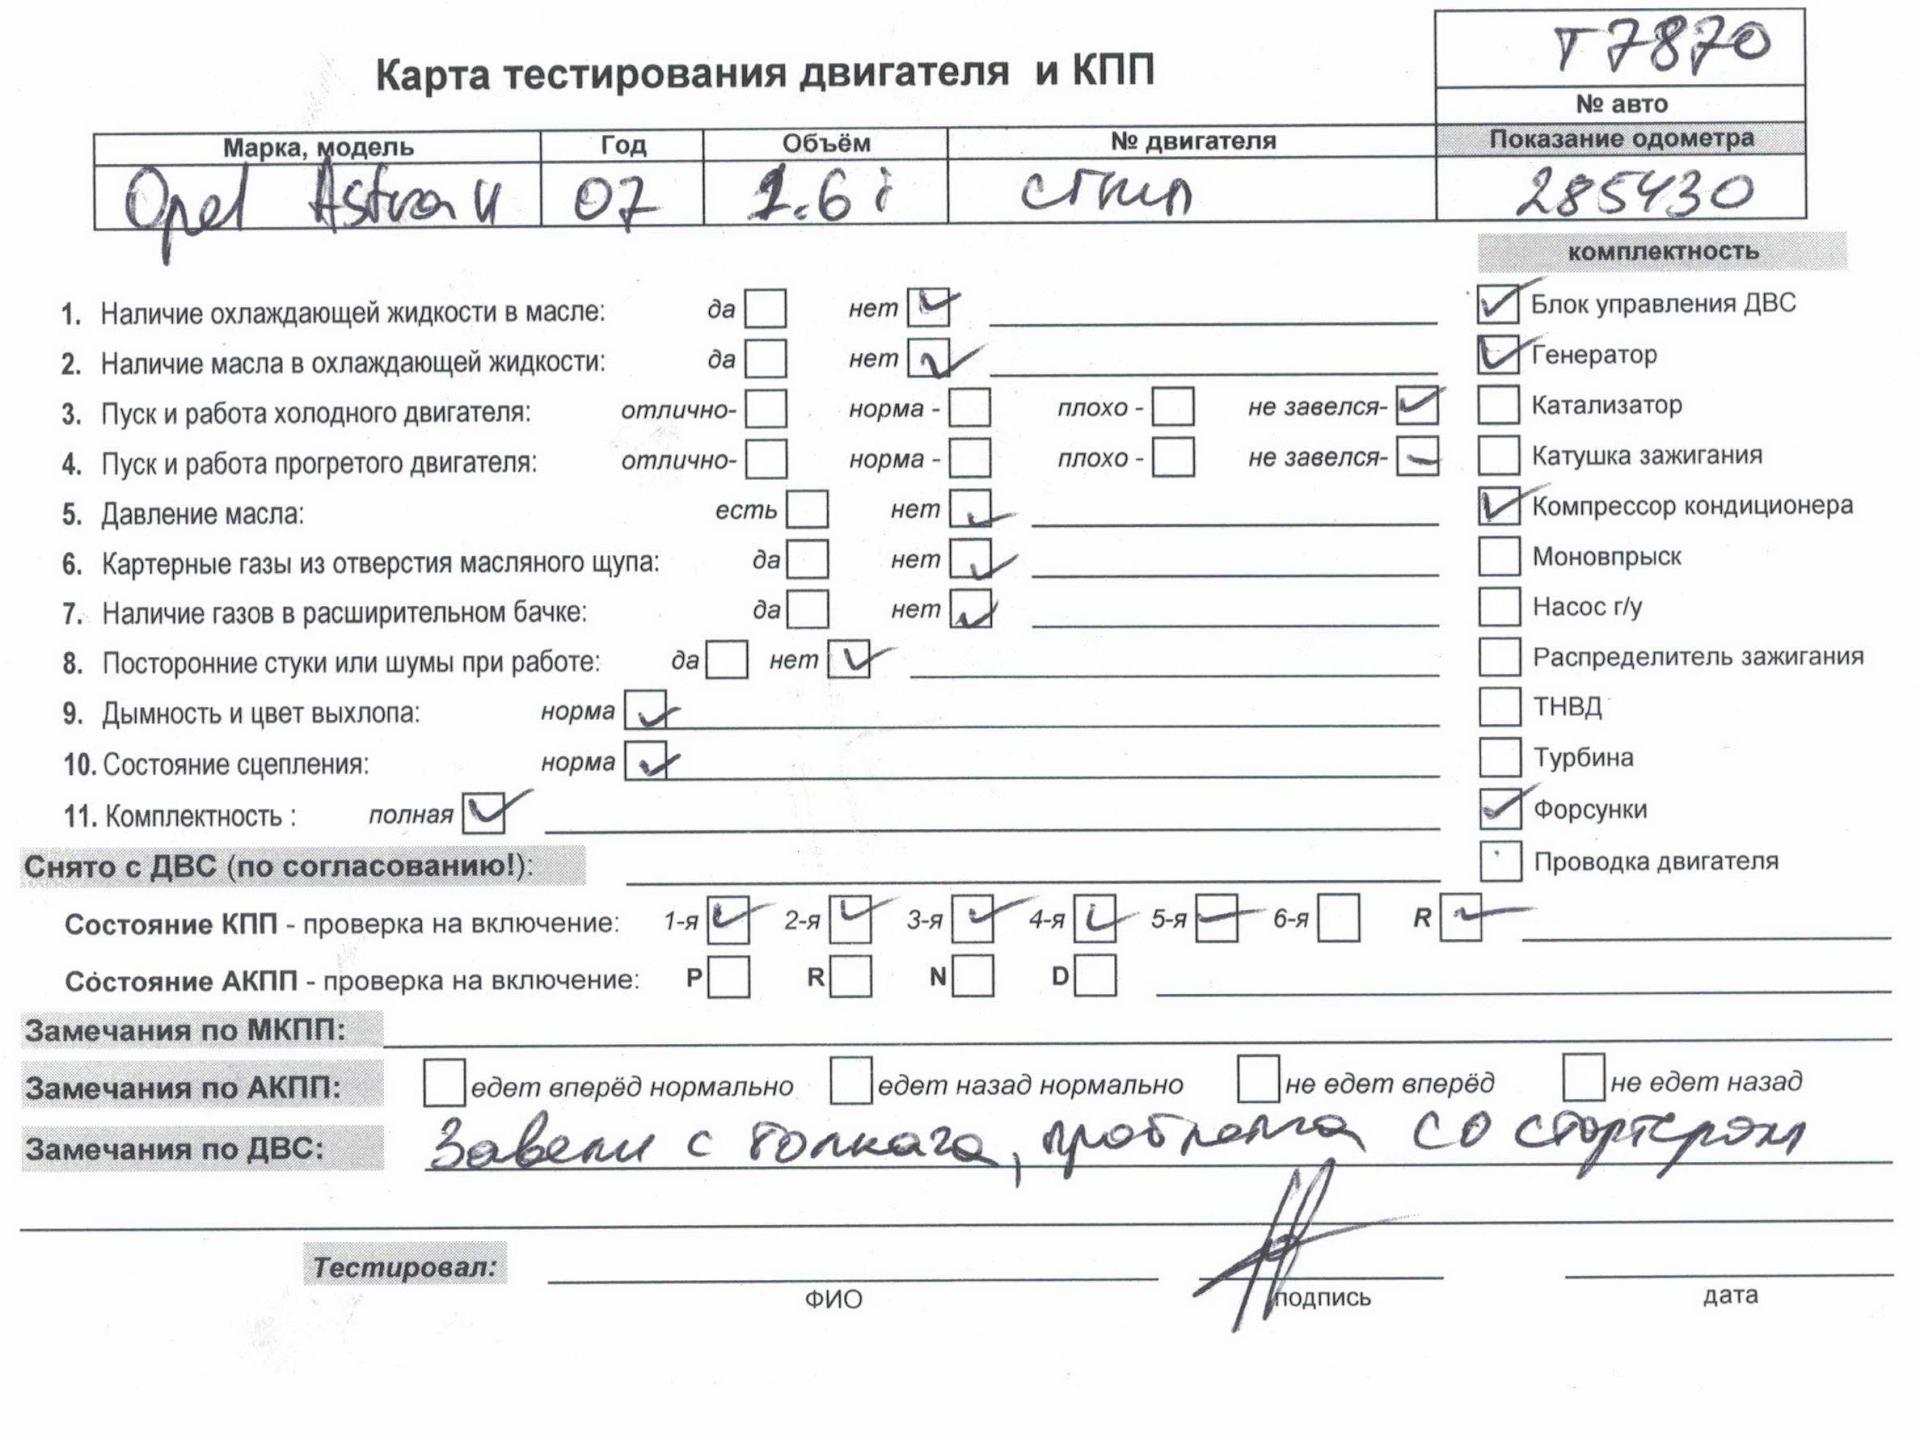 Т7870
Карта тестирования двигателя и КПП
№ авто
Марка, модель Год Объём № двигателя Показание одометра
Opel Astra H 07 1.6i 285430
комплектность
1. Наличие охлаждающей жидкости в масле: да нет Блок управления ДВС
2. Наличие масла в охлаждающей жидкости: да нет Генератор
3. Пуск и работа холодного двигателя: отлично- норма - плохо - не завелся- Катализатор
4. Пуск и работа прогретого двигателя: отлично- норма - плохо - не завелся- Катушка зажигания
5. Давление масла: есть нет Компрессор кондиционера
6. Картерные газы из отверстия масляного щупа: да нет Моновпрыск
7. Наличие газов в расширительном бачке: да нет Насос г/у
8. Посторонние стуки или шумы при работе: да нет Распределитель зажигания
9. Дымность и цвет выхлопа: норма ТНВД
10. Состояние сцепления: норма Турбина
11. Комплектность : полная Форсунки
Снято с ДВС (по согласованию!): Проводка двигателя
Состояние КПП - проверка на включение: 1-я 2-я 3-я 4-я 5-я 6-я R
Состояние АКПП - проверка на включение: P R N D
Замечания по МКПП:
Замечания по АКПП: едет вперёд нормально едет назад нормально не едет вперёд не едет назад
Замечания по ДВС: Завели с толкача, проблема со стартером
Тестировал:
ФИО подпись дата